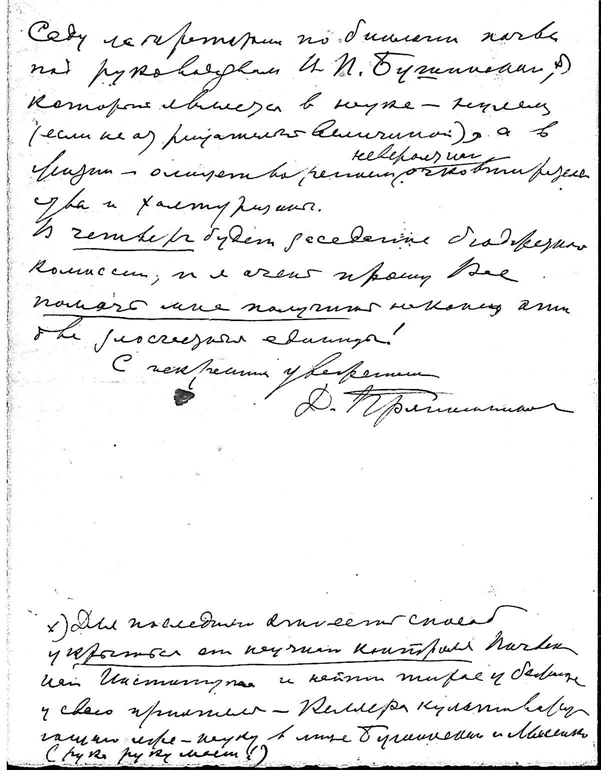 Саду лабораторию по биологии почвы
под руководством И. П. Бушинский, x)
который является в науке – нулем
(если не отрицательной величиной), а в
жизни – олицетворением невероятного очковтиратель
ства и халтуризма.
В четверг будет заседание бюджетной
комиссии, и я очень прошу Вас
помочь мне получить наконец эти
две злосчастные единицы!
С искренним уважением
Д. Прянишников
x) Для последних имеет способ
укрыться от научного контроля Почвен
ного Института и найти
у своего приятеля – Келлера культивиру
ющего лже-науку в лице Бушинский и
(рука руку моет!)